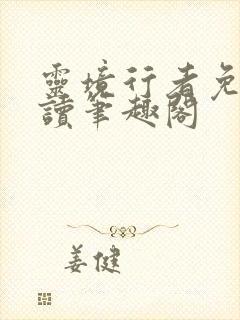 靈境行者免
讀筆趣閣
姜健